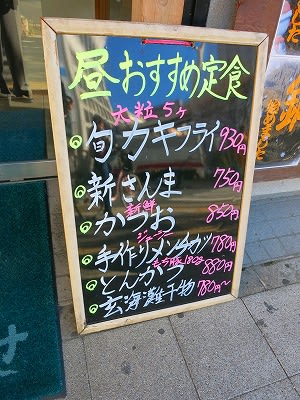 昼おすすめ定食
大粒5ヶ
旬カキフライ 930円
新さんま 750円
新鮮
かつお 850円
ジューシー
手作りメンチカツ 780円
もち豚180g
とんかつ 880円
玄海灘干物 780円〜
せ